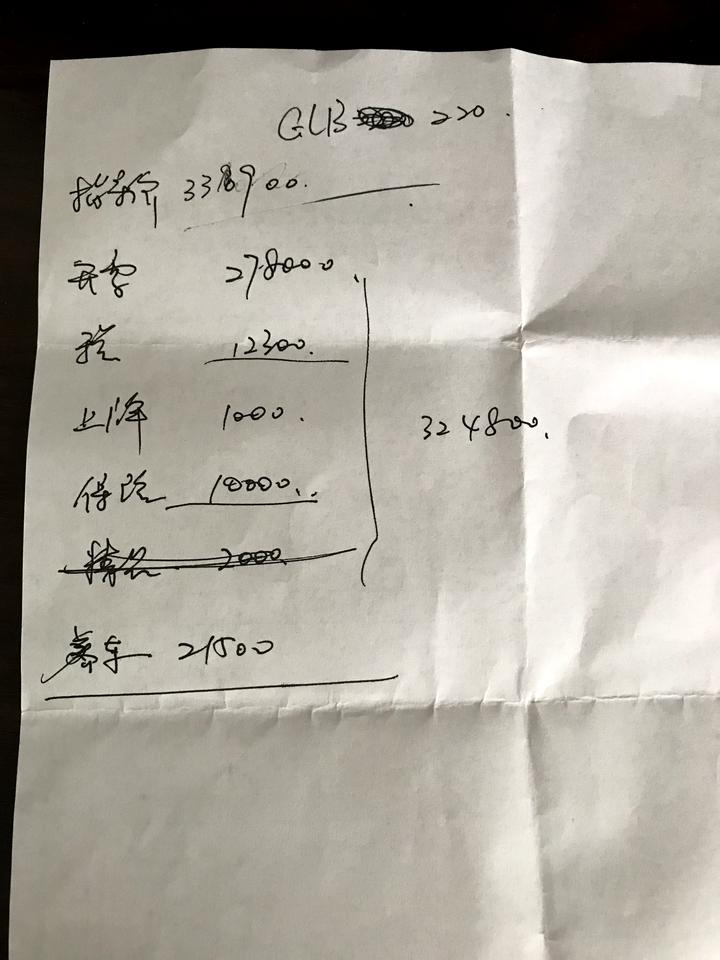 GLB 220
指导价 338900
开票 278000
税 12300
上牌 1000
保险 10000
324800
2000
21500